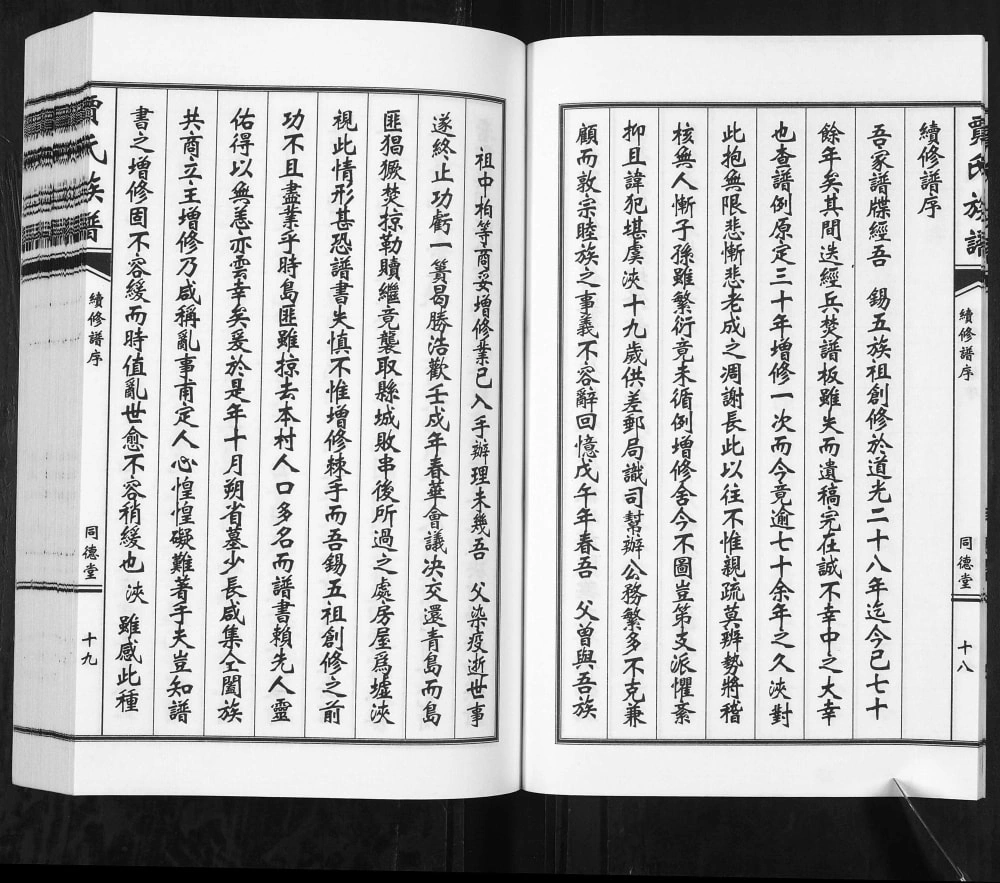 賈氏族譜
續修譜序
同德堂
十八
續修譜序
吾家譜牒經吾 錫五族祖創修於道光二十八年迄今已七十
餘年矣其間迭經兵焚譜板雖失而遺稿完在誠不幸中之大幸
也查譜例原定三十年增修一次而今竟逾七十余年之久浹對
此抱無限悲慚悲老成之凋謝長此以往不惟親疏莫辨勢將稽
核無人慚子孫雖繁衍竟未循例增修舍今不圖豈第支派懼紊
抑且諱犯堪虞浹十九歲供差郵局識司幫辦公務繁多不克兼
顧而敦宗睦族之事義不容辭回憶戊午年春吾 父曾與吾族
祖中柏等商妥增修業已入手辦理未幾吾 父染疫逝世事
遂終止功虧一簣曷勝浩歎壬戌年春華會議決交還青島而島
匪猖獗焚掠勒贖繼竟襲取縣城敗串後所過之處房屋爲墟浹
視此情形甚恐譜書失慎不惟增修棘手而吾錫五祖創修之前
功不且盡業乎時島匪雖掠去本村人口多名而譜書賴先人靈
佑得以無恙亦雲幸矣爰於是年十月朔省墓少長咸集仝闔族
共商立主增修乃咸稱亂事甫定人心惶惶礙難著手夫豈知譜
書之增修固不容緩而時值亂世愈不容稍緩也 浹 雖感此種
賈氏族譜
續修譜序
同德堂
十九